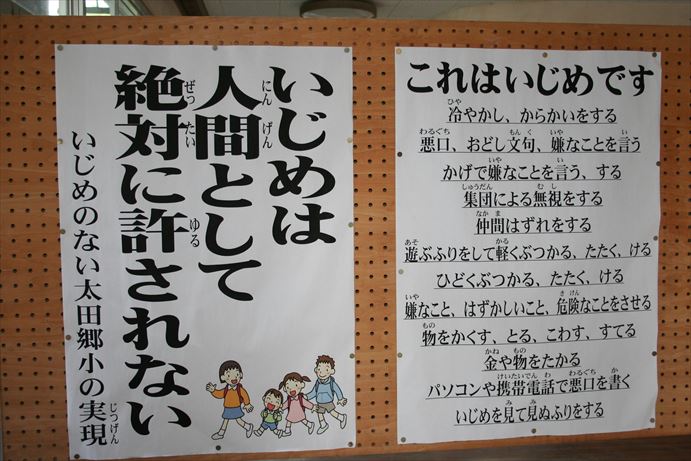 いじめは
人間として
絶対に許されない
いじめのない太田郷小の実現
これはいじめです
冷やかし、からかいをする
悪口、おどし文句、嫌なことを言う
かげで嫌なことを言う、する
集団による無視をする
仲間はずれをする
遊ぶふりをして軽くぶつかる、たたく、ける
ひどくぶつかる、たたく、ける
嫌なこと、はずかしいこと、危険なことをさせる
物をかくす、とる、こわす、すてる
金や物をたかる
パソコンや携帯電話で悪口を書く
いじめを見て見ぬふりをする